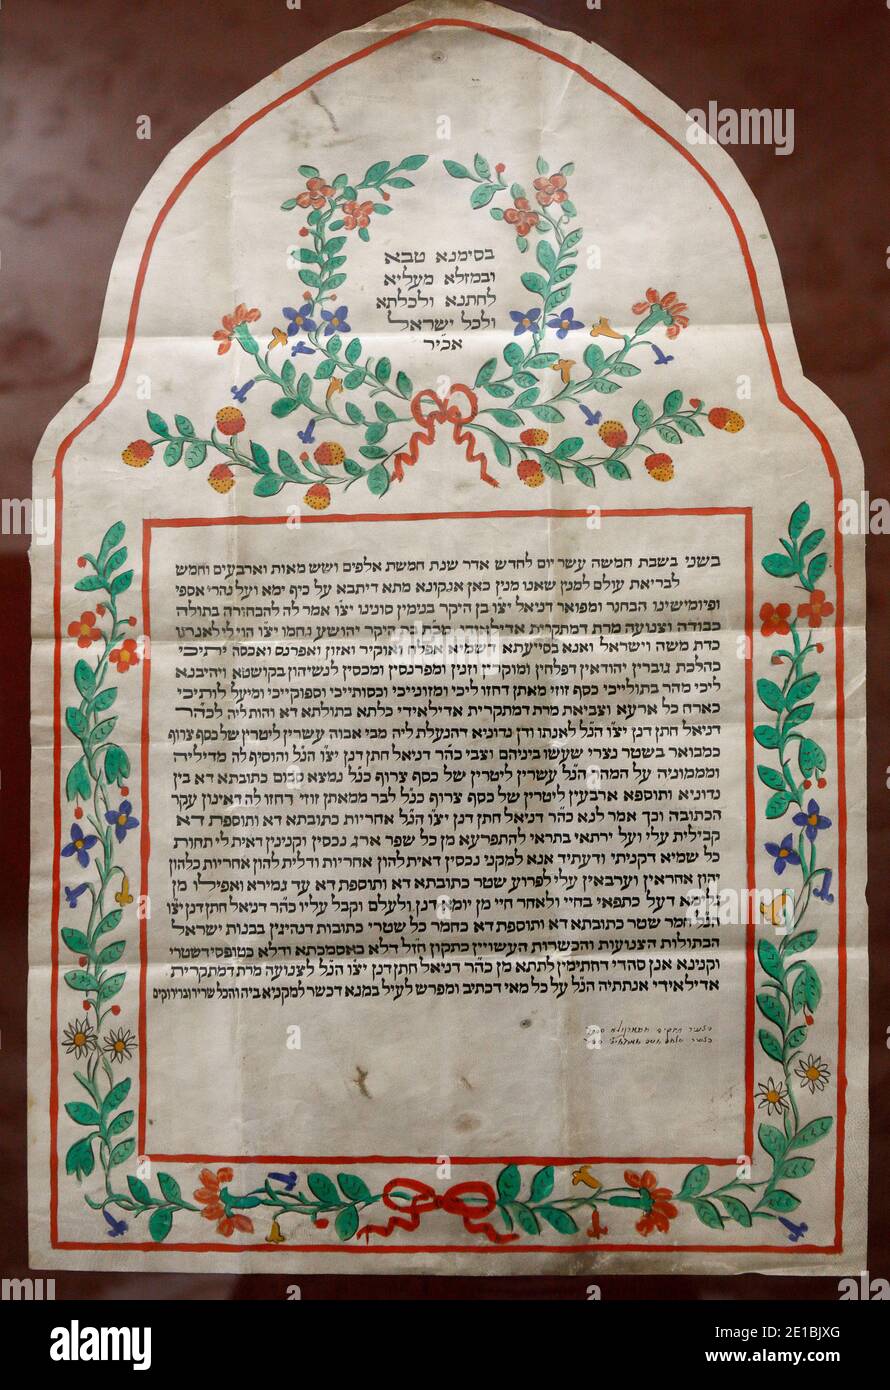 בסימנא טבא
ובמזלא מעליא
לחתנא ולכלתא
ולכל ישראל
אכי״ר
בשני בשבת חמשה עשר יום לחדש אדר שנת חמשת אלפים ושש מאות וארבעים וחמש
לבריאת עולם למנין שאנו מנין כאן אנקונא מתא דיתבא על כיף ימא ועל נהרי אספי
ופיומישינו הבחור ומפואר דניאל יצ״ו בן היקר בנימין סונינו יצ״ו אמר לה להבחורה בתולה
כבודה וצנועה מרת דמתקרית אדילאידי מב״ת בת היקר יהושע נחמו יצ״ו הוי לי לאנתו
כדת משה וישראל ואנא בסייעתא דשמיא אפלח ואוקיר ואיזון ואפרנס ואכסה יתיכי
כהלכת גוברין יהודאין דפלחין ומוקרין וזנין ומפרנסין ומכסין לנשיהון בקושטא ויהיבנא
ליכי מהר בתולייכי כסף זוזי מאתן דחזו ליכי ומזונייכי וכסותייכי וספוקייכי ומיעל לותיכי
כארח כל ארעא וצביאת מרת דמתקרית אדילאידי כלתא בתולתא דא והות ליה לכה״ר
דניאל חתן דנן יצ״ו הנ״ל לאנתו ודן נדוניא דהנעלת ליה מבי אבוה עשרין ליטרין של כסף צרוף
כמבואר בשטר נצרי שעשו ביניהם וצבי כה״ר דניאל חתן דנן יצ״ו הנ״ל והוסיף לה מדיליה
ומממוניה על המהר הנ״ל עשרין ליטרין של כסף צרוף כנ״ל נמצא סכום כתובתא דא בין
נדוניא ותוספא ארבעין ליטרין של כסף צרוף כנ״ל לבר ממאתן זוזי דחזו לה דאינון עקר
הכתובה וכך אמר לנא כה״ר דניאל חתן דנן יצ״ו הנ״ל אחריות כתובתא דא ותוספת דא
קבילית עלי ועל ירתאי בתראי להתפרעא מן כל שפר ארג נכסין וקנינין דאית לי תחות
כל שמיא דקניתי ודעתיד אנא למקני נכסין דאית להון אחריות ודלית להון אחריות כלהון
יהון אחראין וערבאין עלי לפרוע שטר כתובתא דא ותוספת דא עד גמירא ואפילו מן
גלימא דעל כתפאי בחיי ולאחר חיי מן יומא דנן ולעלם וקבל עליו כה״ר דניאל חתן דנן יצ״ו
הנ״ל חמר שטר כתובתא דא ותוספת דא כחמר כל שטרי כתובות דנהיגין בבנות ישראל
הבתולות הצנועות והכשרות העשויין כתקון חז״ל דלא כאסמכתא ודלא כטופסי דשטרי
וקנינא אנן סהדי דחתימין לתתא מן כה״ר דניאל חתן דנן יצ״ו הנ״ל לצנועה מרת דמתקרית
אדילאידי אנתתיה הנ״ל על כל מאי דכתיב ומפרש לעיל במנא דכשר למקניא ביה והכל שריר וברור וקים
alamy
Image ID: 2E1BJXG
www.alamy.com